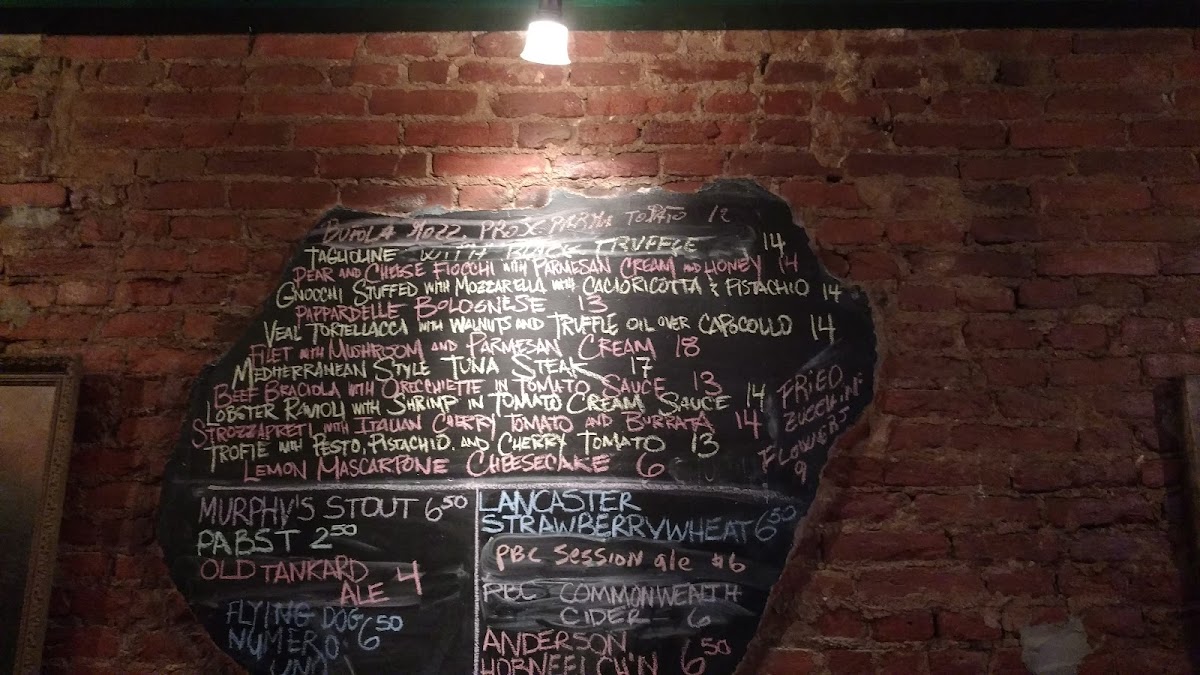 BUFOLA MOZZ PROSC PARMA TOMATO 12
TAGLIOLINE WITH BLACK TRUFFLE 14
PEAR AND CHEESE FIOCCHI WITH PARMESAN CREAM AND HONEY 14
GNOCCHI STUFFED WITH MOZZARELLA WITH CACIORICOTTA & PISTACHIO 14
PAPPARDELLE BOLOGNESE 13
VEAL TORTELLACCA WITH WALNUTS AND TRUFFLE OIL OVER CAPOCOLLO 14
FILET WITH MUSHROOM AND PARMESAN CREAM 18
MEDITERRANEAN STYLE TUNA STEAK 17
BEEF BRACIOLA WITH ORECCHIETTE IN TOMATO SAUCE 13
LOBSTER RAVIOLI WITH SHRIMP IN TOMATO CREAM SAUCE 14
STROZZAPRETI WITH ITALIAN CHERRY TOMATO AND BURRATA 14
TROFIE WITH PESTO, PISTACHIO, AND CHERRY TOMATO 13
LEMON MASCARPONE CHEESECAKE 6
FRIED
ZUCCHINI
FLOWERS
9
MURPHY'S STOUT 6 50
PABST 2 50
OLD TANKARD
ALE 4
FLYING DOG
NUMERO 6 50
UNO
LANCASTER
STRAWBERRY WHEAT 6 50
PBC SESSION ale $6
PBC COMMONWEALTH
CIDER 6
ANDERSON
HORNEELCH'N 6 50